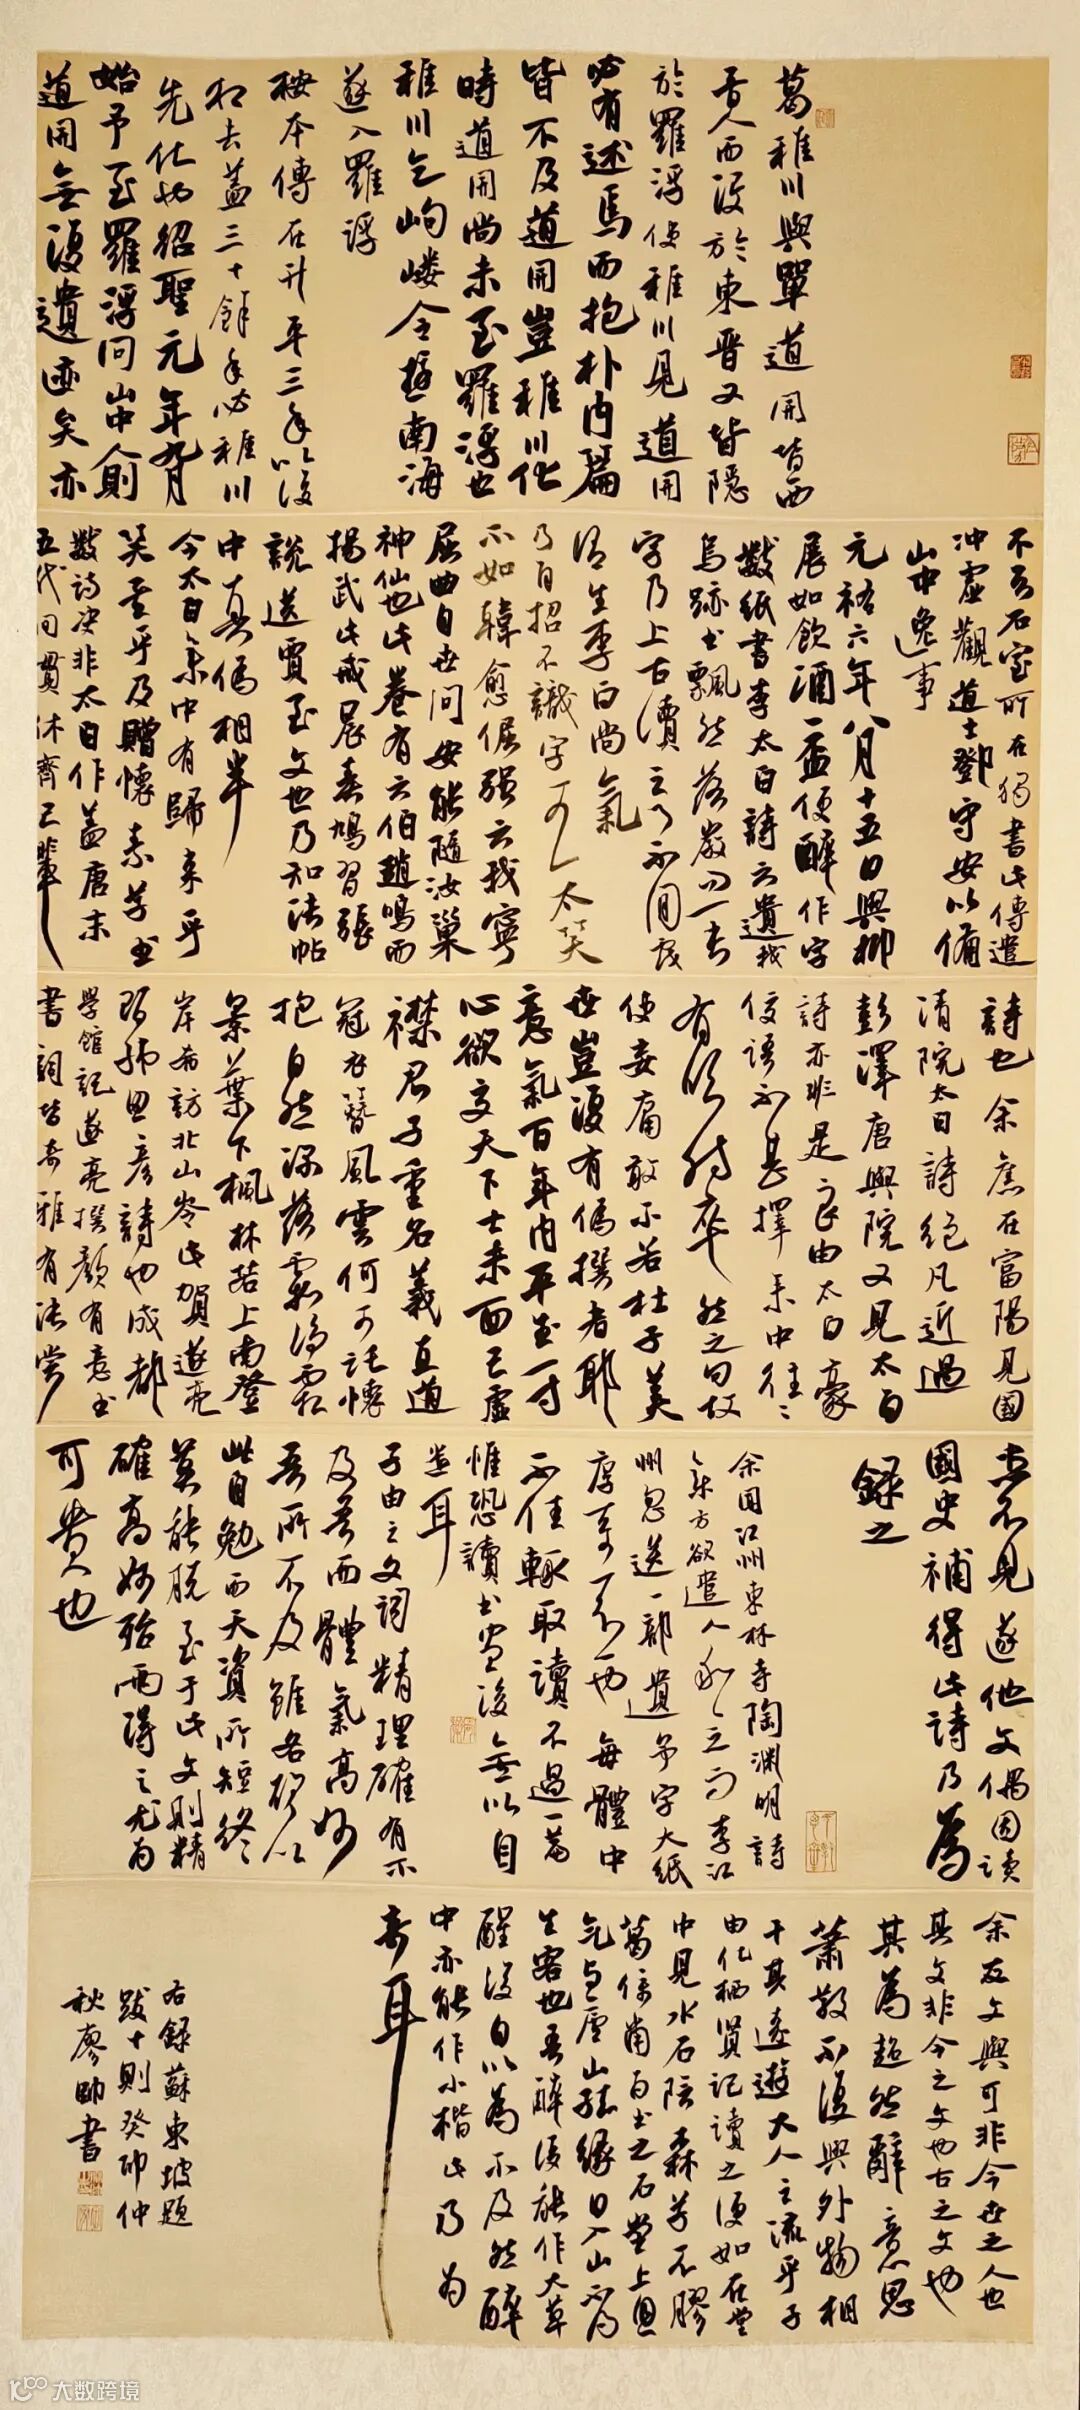 葛稚川與單道開皆西
晉人而沒於東晉又皆隱
於羅浮使稚川見道開
必有述焉而抱朴內篇
皆不及道開豈稚川化
時道開尚未至羅浮也
稚川乞岣嶁令遊南海
遂入羅浮
按本傳在升平三年以後
相去蓋三十餘年必稚川
先化也紹聖元年九月
始予至羅浮問山中則
道開無復遺迹矣亦
不知石室所在獨書此傳遺
沖虛觀道士鄧守安以備
山中逸事
元祐六年八月十五日與柳
展如飲酒一盃便醉作字
數紙書李太白詩云遺我
鳥跡書飄然落巖間其書
字乃上古讀之了不閑戲
謂柳生李白尚氣
乃自招不識字可一大笑
不如韓愈倔强云我寧
屈曲自世間安能隨汝巢
神仙也此卷有云伯趙鳴而
揚武此或晨春鳩習張
說送賈至文也乃知法帖
中真僞相半
今太白集中有歸來乎
笑矣乎及贈懷素草書
數詩決非太白作蓋唐末
五代間貫休齊己輩
詩也余舊在富陽見國
清院太白詩絕凡近過
彭澤唐興院又見太白
詩亦非是良由太白豪
俊語不甚擇集中往往
有臨時率然之句故
使妄庸敢爾若杜子美
世豈復有僞撰者耶
意氣百年內平生一寸
心欲交天下士未面已虛
襟君子重名義直道
冠衣簪風雲何可託懷
抱自然深落霞淨霜
景葉下楓林若上南登
岸希訪北山岑此賀遂亮
贈韓思彥詩也成都
學館記遂亮撰顏有意書
書詞皆奇雅有法嘗
患不見遂他文偶因讀
國史補得此詩乃爲
錄之
余聞江州東林寺陶淵明詩
集方欲遣人求之而李江
州忽送一部遺予字大紙
厚甚可喜也每體中
不佳輒取讀不過一篇
惟恐讀書盡後無以自
遣耳
子由之文詞精理確有不
及吾而體氣高妙
吾所不及雖各欲以
此自勉而天資所短終
莫能脫至于此文則精
確高妙殆兩得之尤爲
可貴也
余友文與可非今世之人也
其文非今之文也古之文也
其爲超然辭意思
蕭散不復與外物相
干其遠遊大人之流乎子
由作栖賢記讀之便如在堂
中見水石陰森草木膠
葛僕當爲書之刻石堂上且
欲與廬山結緣他日入山不爲
生客也吾醉後能作大草
醒後自以爲不及然醉
中亦能作小楷此乃爲
奇耳
右錄蘇東坡題
跋十則癸卯仲
秋廖帥書
大数跨境